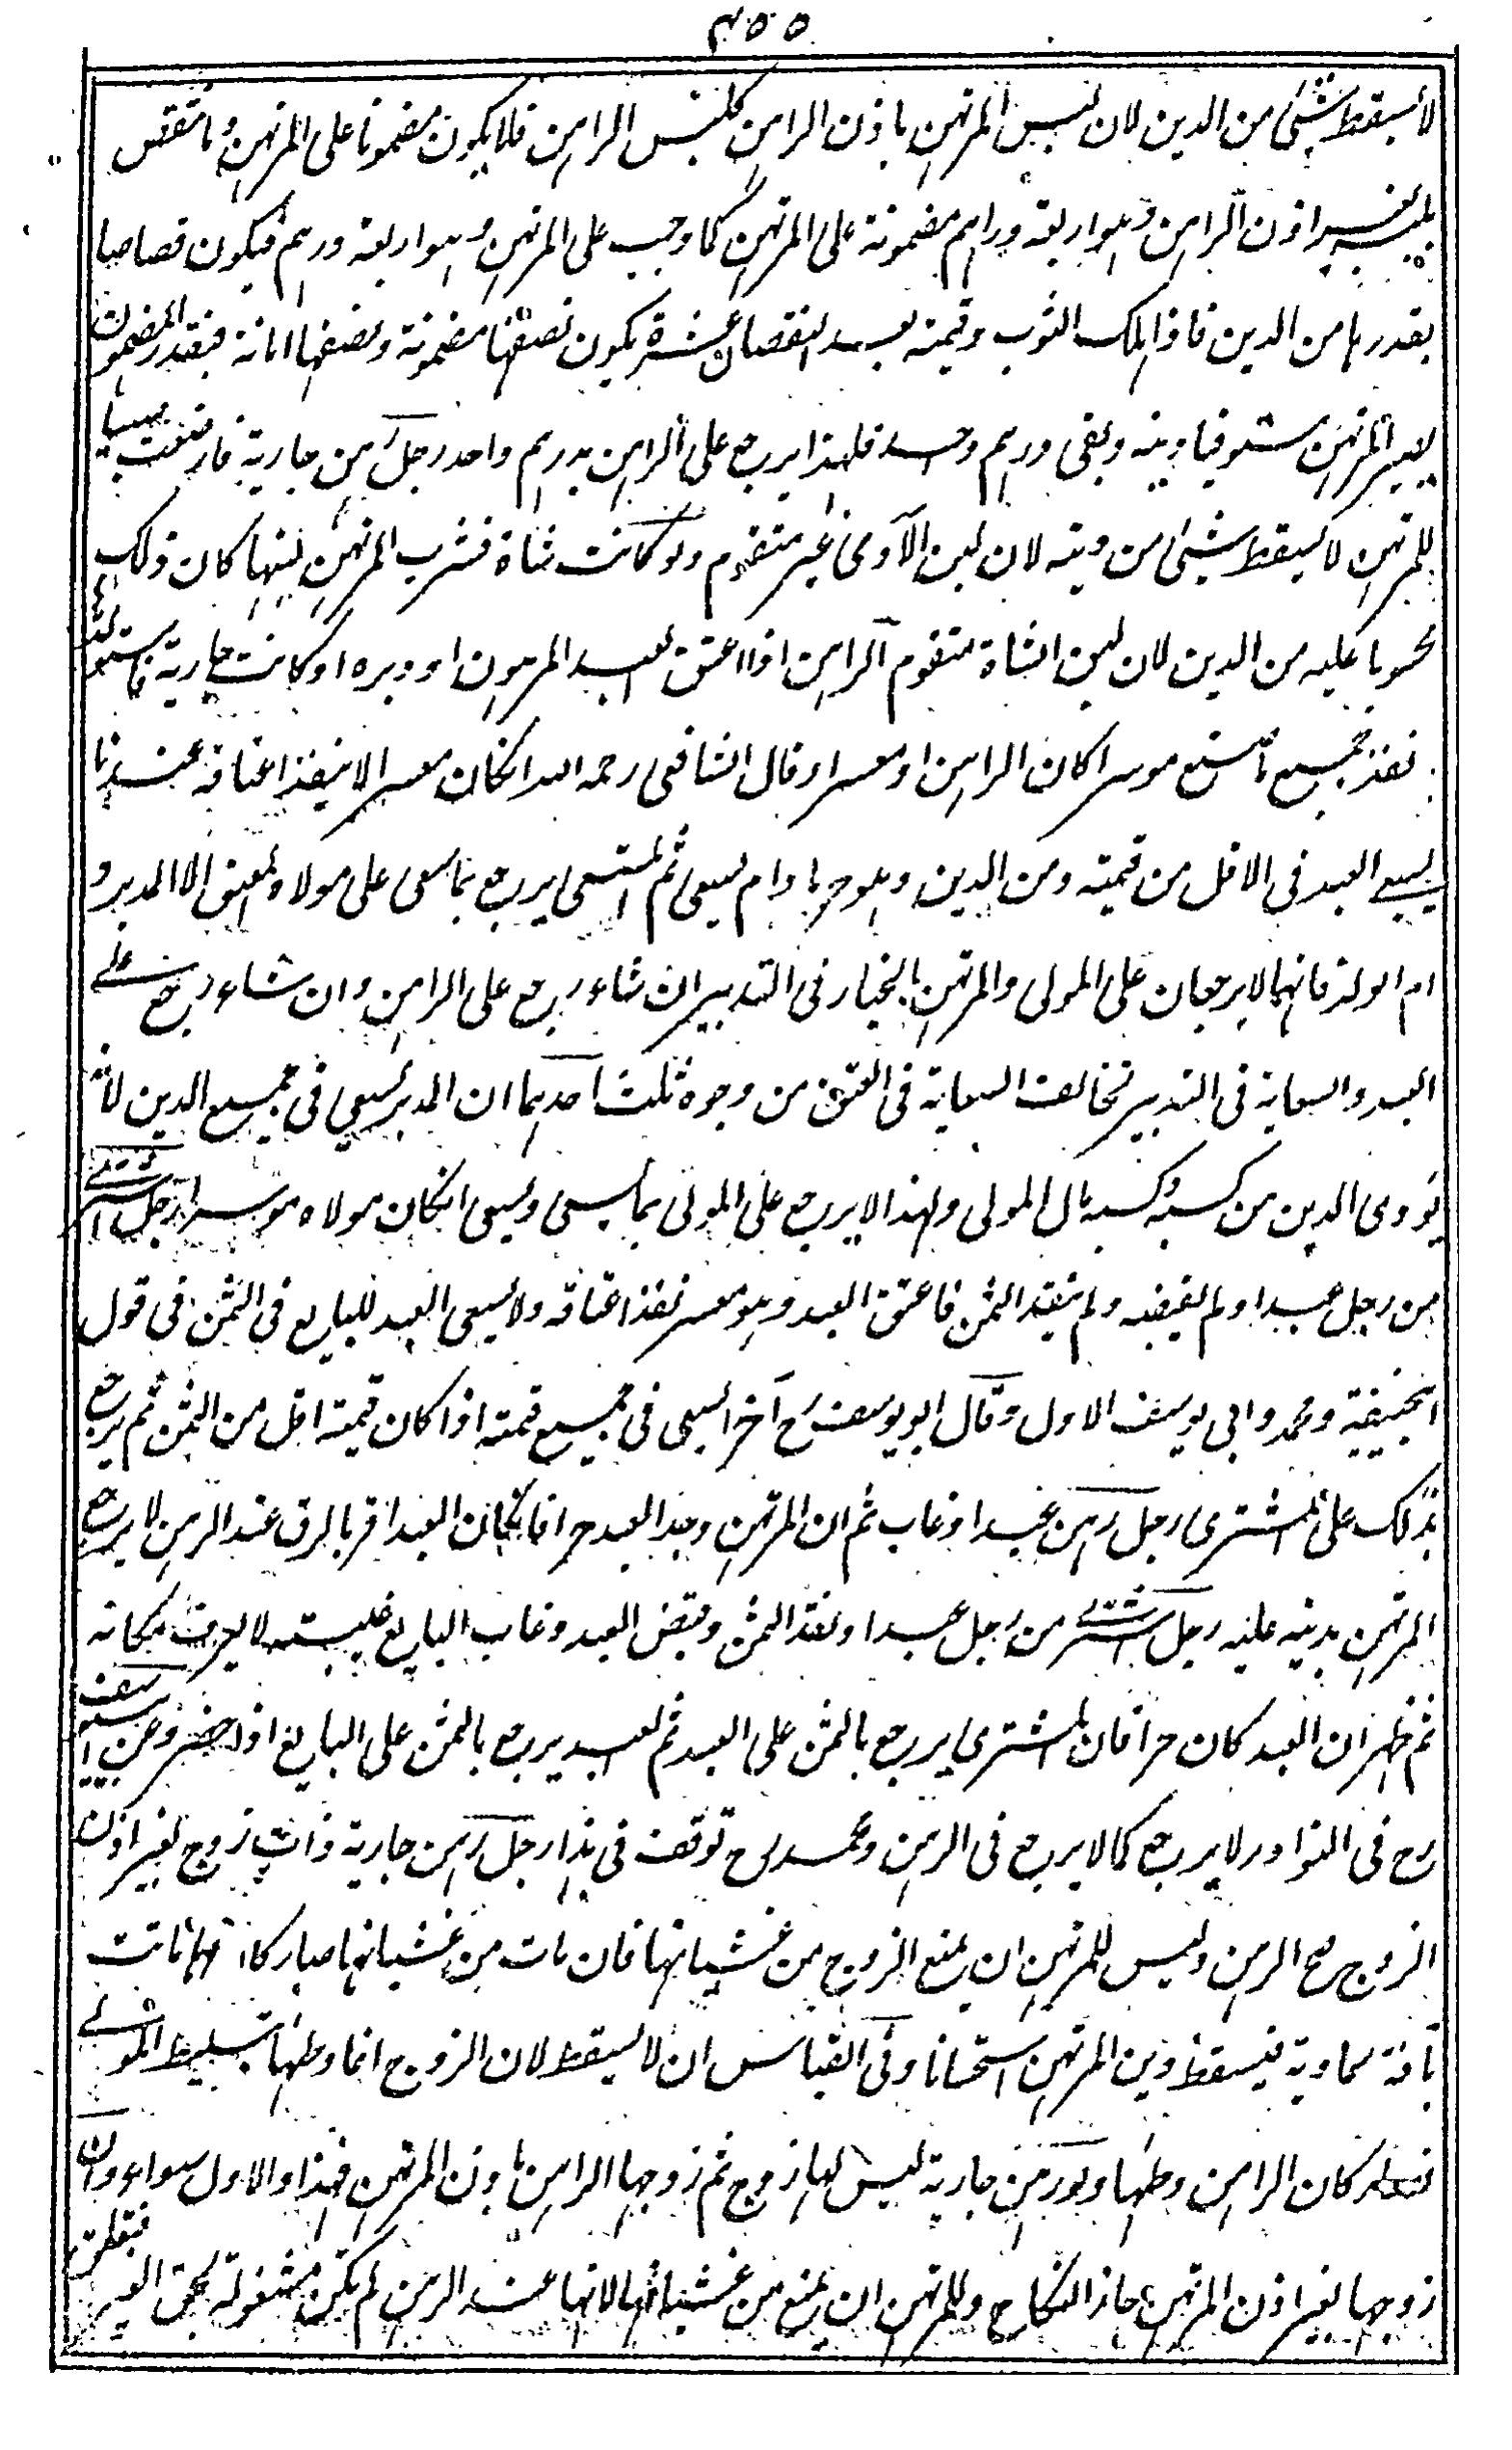 ٤٥٥
لا يسقط شئ من الدين لان لبس المرتهن باذن الراهن كلبس الراهن فلا يكون مضمونا على المرتهن وما انتقص
بلبسه بغير اذن الراهن وهو اربعة دراهم مضمونة على المرتهن كما وجب على المرتهن وهو اربعة دراهم فيكون قصاصا
بقدرها من الدين فاذا هلك الثوب وقيمته بعد النقصان عشرة يكون نصفها مضمونة ونصفها امانة فبقدر المضمون
يصير المرتهن مستوفيا دينه وبقى درهم واحد فلهذا يرجع على الراهن بدرهم واحد رجل رهن جارية فارضعت صبيا
للمرتهن لا يسقط شئ من دينه لان لبن الآدمى غير متقوم ولو كانت شاة فشرب المرتهن لبنها كان ذلك
محسوبا عليه من الدين لان لبن الشاة متقوم الراهن اذا اعتق العبد المرهون او دبره او كانت جارية فاستولدها
نفذ جميع ما صنع موسرا كان الراهن او معسرا وقال الشافعى رحمه الله ان كان معسرا لا ينفذ اعتاقه عندنا
يسعى العبد فى الاقل من قيمته ومن الدين وهو حر ما دام يسعى ثم المستسعى يرجع بما سعى على مولاه المعتق الا المدبر و
ام الولد فانهما لا يرجعان على المولى والمرتهن بالخيار فى التدبير ان شاء رجع على الراهن وان شاء رجع على
العبد والسعاية فى التدبير تخالف السعاية فى العتق من وجوه ثلث احدهما ان المدبر يسعى فى جميع الدين لانه
يودى الدين من كسبه وكسبه مال المولى ولهذا لا يرجع على المولى بما سعى ويسعى ان كان مولاه موسرا رجل اشترى
من رجل عبدا ولم يقبضه ولم ينقد الثمن فاعتق العبد وهو معسر نفذ اعتاقه ولا يسعى العبد للبايع فى الثمن فى قول
ابى حنيفة ومحمد وابى يوسف الاول وقال ابو يوسف رح آخرا يسعى فى جميع قيمته اذا كان قيمته اقل من الثمن ثم يرجع
بذلك على المشترى رجل رهن عبدا وغاب ثم ان المرتهن وجد العبد حرا فان كان العبد اقر بالرق عند الرهن لا يرجع
المرتهن بدينه عليه رجل اشترى من رجل عبدا ونقد الثمن وقبض العبد وغاب البايع غيبته لا يعرف مكانه
ثم ظهر ان العبد كان حرا فان المشترى يرجع بالثمن على العبد ثم العبد يرجع بالثمن على البايع اذا حضر وعن ابى يوسف
رح فى النوادر لا يرجع كما لا يرجع فى الرهن ومحمد رح توقف فى هذا رجل رهن جارية ذات زوج بغير اذن
الزوج صح الرهن وليس للمرتهن ان يمنع الزوج من غشيانها فان مات من غشيانها صار كانها ماتت
بآفة سماوية فيسقط دين المرتهن استحسانا وفى القياس ان لا يسقط لان الزوج انما وطئها بتسليط المولى
فصار كان الراهن وطئها ولو رهن جارية ليس لها زوج ثم زوجها الراهن باذن المرتهن فهذا والاول سواء وان
زوجها بغير اذن المرتهن جاز النكاح وللمرتهن ان يمنع من غشيانها لانها عند الرهن لم تكن مشغولة بحق الغير